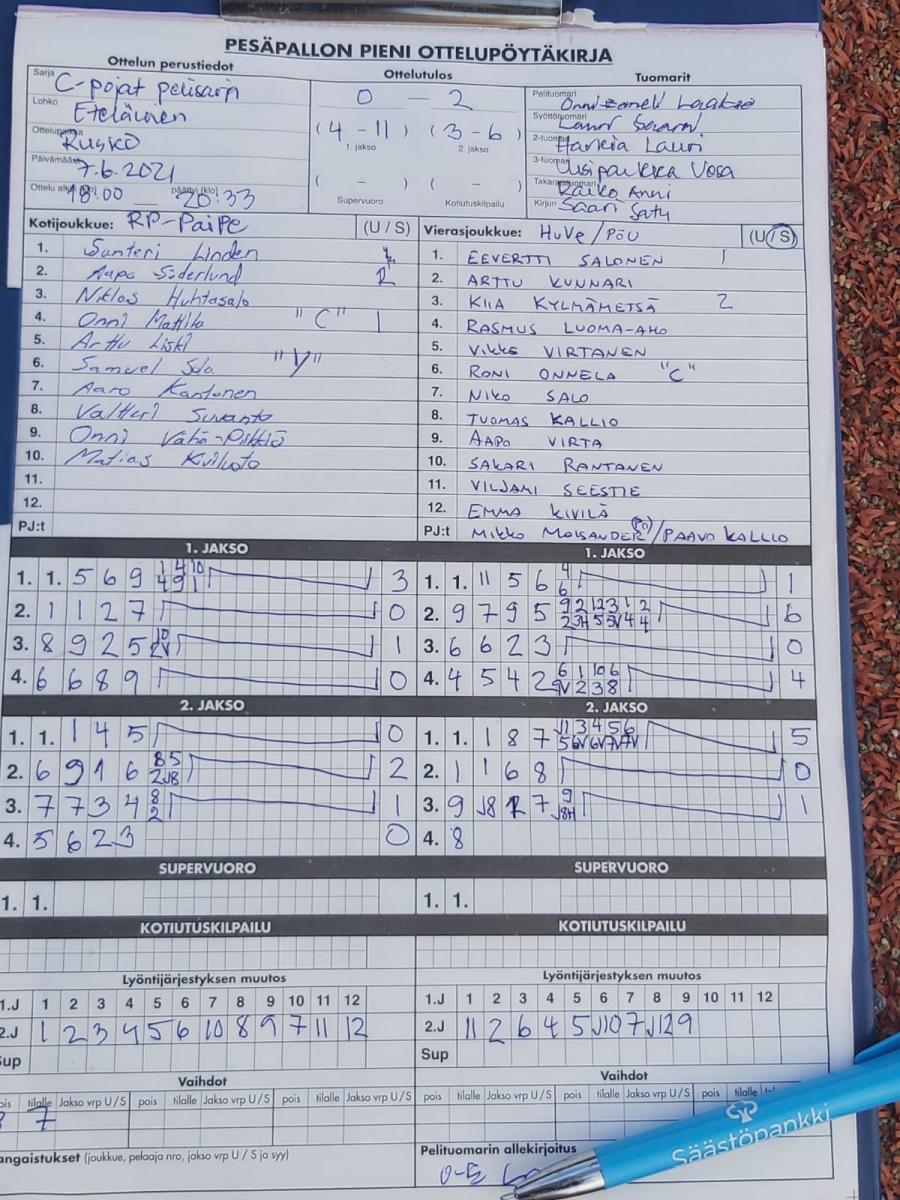 PESÄPALLON PIENI OTTELUPÖYTÄKIRJA
Ottelun perustiedot
Ottelutulos
Tuomarit
Sarja C-pojat pelisarja
Lohko Eteläinen
Ottelupaikka Rusko
Päivämäärä 7.6.2021
18:00 — päättyi (klo) 20:33
0 - 2
(4 - 11) (3 - 6)
1. jakso 2. jakso
( - ) ( - )
Supervuoro Kotiutuskilpailu
Pelituomari
Syöttötuomari Lauri
2-tuomari Harkia Lauri
3-tuomari Vesa
Raiko Anni
Kirjuri Saari Satu
Kotijoukkue: RP-Paipe (U / S)
1. Santeri Linden
2. Aapo Söderlund 2
3. Niklas Huhtasalo
4. Onni Mattila "C" 1
5. Arttu Liski
6. Samuel Sola "V"
7. Aaro Kantonen
8. Valtteri Suvanto
9. Onni Vähä-Piikkiö
10. Matias
11.
12.
PJ:t
Vierasjoukkue: HuVe/PöU (U / S)
1. EEVERTTI SALONEN 1
2. ARTTU KUNNARI
3. KIIA KYLMÄMETSÄ 2
4. RASMUS LUOMA-AHO
5. VIKKE VIRTANEN
6. RONI ONNELA "C"
7. NIKO SALO
8. TUOMAS KALLIO
9. AAPO VIRTA
10. SAKARI RANTANEN
11. VILJAMI SEESTIE
12. EMMA KIVILÄ
PJ:t MIKKO MOISANDER / PAAVO KALLIO
1. JAKSO
1. 1. 5 6 9 1 4 10 3
4 9 1
2. 1 1 2 7 0
3. 8 9 2 5 10 1
2V
4. 6 6 8 9 0
1. JAKSO
1. 1. 11 5 6 4 1
6
2. 9 7 9 5 9 2 12 3 1 2 6
3. 6 6 2 3 0
4. 4 5 4 2 6 1 10 6 4
9V 2 3 8
2. JAKSO
1. 1. 1 4 5 0
2. 6 9 1 6 8 5 2
2 J8
3. 7 7 3 4 8 1
2
4. 5 6 2 3 0
2. JAKSO
1. 1. 1 8 7 J1 3 4 5 6 5
5 6V 6V 7V 7V
2. 1 1 6 8 0
3. 9 J8 7 9 1
J8H
4. 8
SUPERVUORO
1. 1.
SUPERVUORO
1. 1.
KOTIUTUSKILPAILU
KOTIUTUSKILPAILU
Lyöntijärjestyksen muutos
1.J 1 2 3 4 5 6 7 8 9 10 11 12
2.J 1 2 3 4 5 6 10 8 9 7 11 12
Sup
Lyöntijärjestyksen muutos
1.J 1 2 3 4 5 6 7 8 9 10 11 12
2.J 11 2 6 4 5 J10 7 J12 9
Sup
Vaihdot
pois tilalle Jakso vrp U / S pois tilalle Jakso vrp U / S pois tilalle Jakso vrp U / S
7
Vaihdot
pois tilalle Jakso vrp U / S pois tilalle Jakso vrp U / S pois tilalle
Rangaistukset (joukkue, pelaaja nro, jakso vrp U / S ja syy)
Pelituomarin allekirjoitus
Säästöpankki